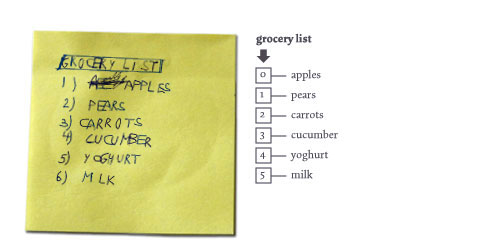 GROCERY LIST
1) APPLES
2) PEARS
3) CARROTS
4) CUCUMBER
5) YOGHURT
6) MILK
grocery list
0 apples
1 pears
2 carrots
3 cucumber
4 yoghurt
5 milk